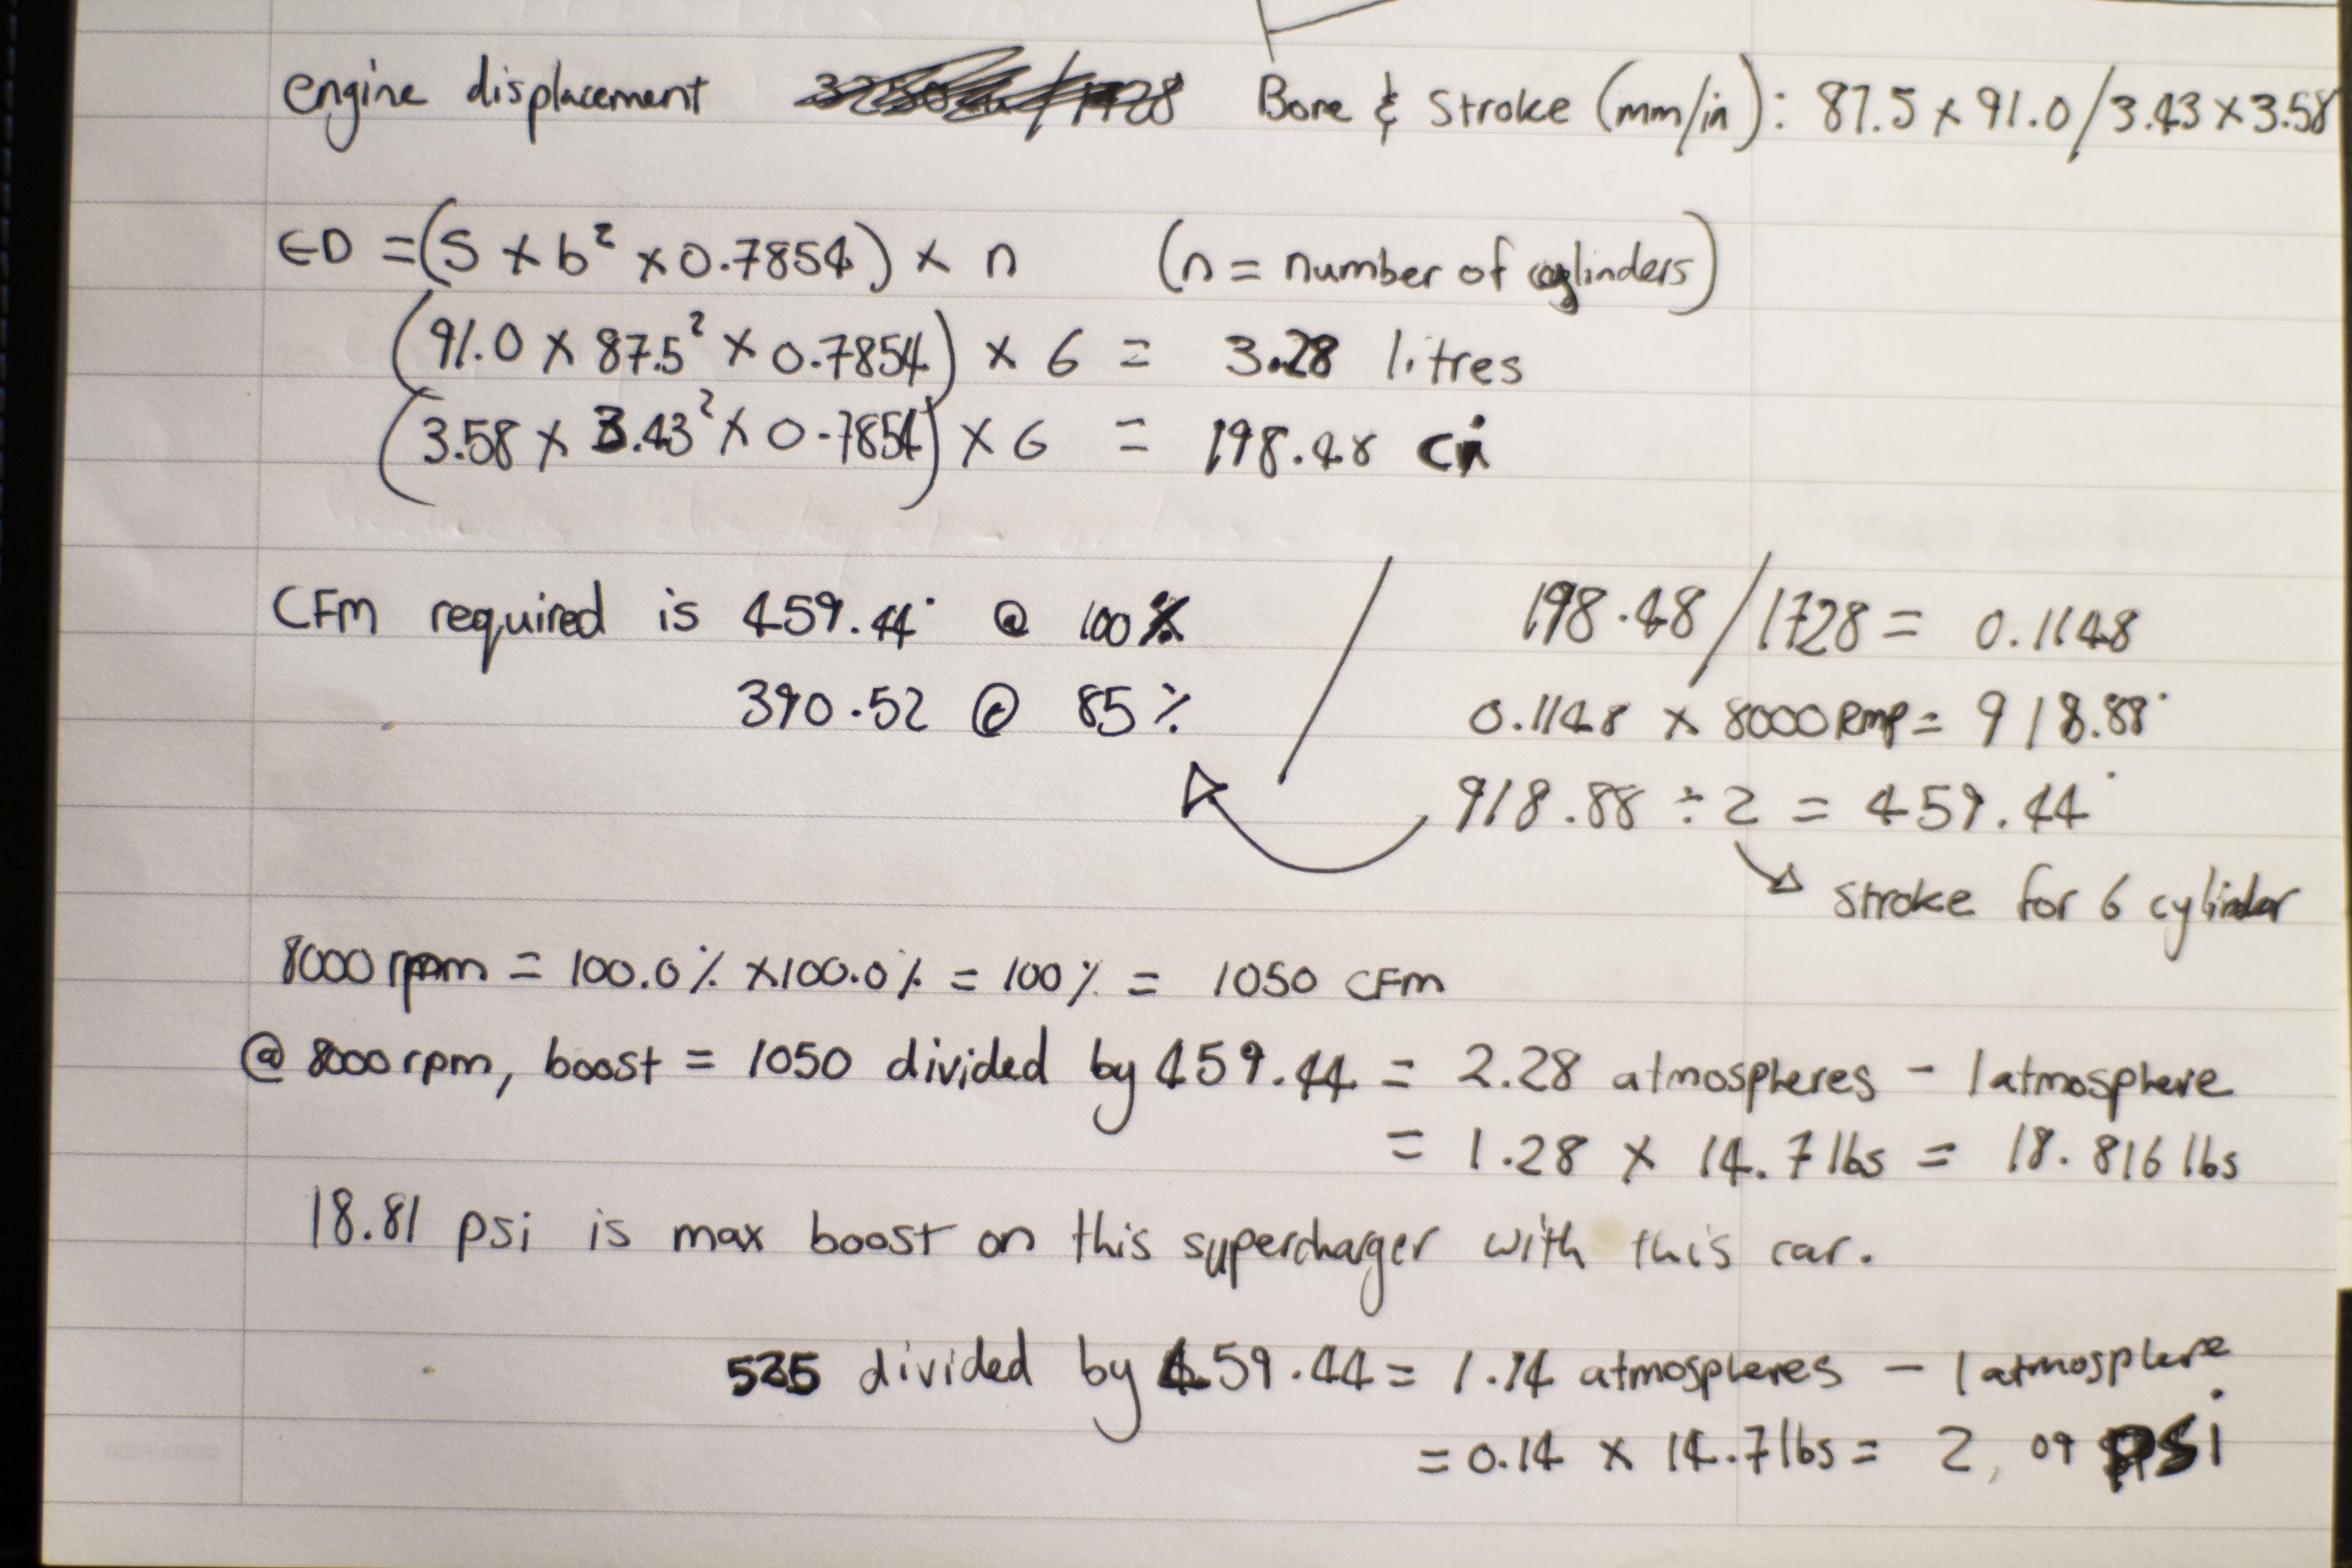 engine displacement Bore & Stroke (mm/in): 87.5 x 91.0/3.43 x 3.58
ED = (S x b² x 0.7854) x n (n = number of cylinders)
(91.0 x 87.5² x 0.7854) x 6 = 3.28 litres
(3.58 x 3.43² x 0.7854) x 6 = 198.48 ci
CFM required is 459.44˙ @ 100%
390.52 @ 85%
198.48/1728 = 0.1148
0.1148 x 8000 RMP = 918.88˙
918.88 ÷ 2 = 459.44˙
stroke for 6 cylinder
8000 rpm = 100.0% x 100.0% = 100% = 1050 CFM
@ 8000 rpm, boost = 1050 divided by 459.44 = 2.28 atmospheres - 1 atmosphere
= 1.28 x 14.7 lbs = 18.816 lbs
18.81 psi is max boost on this supercharger with this car.
525 divided by 459.44 = 1.14 atmospheres - 1 atmosphere
= 0.14 x 14.7 lbs = 2,09 psi